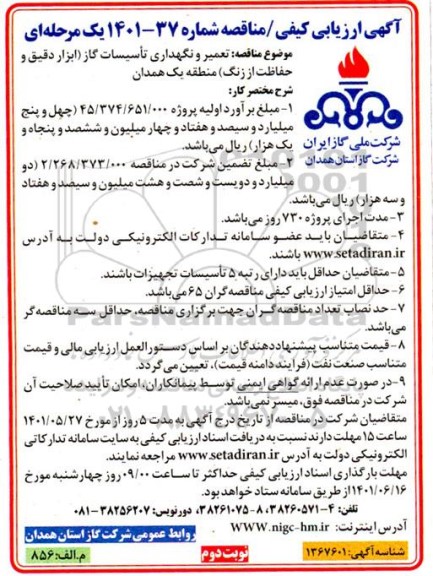 آگهی ارزیابی کیفی / مناقصه شماره ۳۷-۱۴۰۱ یک مرحله‌ای
موضوع مناقصه: تعمیر و نگهداری تأسیسات گاز (ابزار دقیق و
حفاظت از زنگ) منطقه یک همدان
شرکت ملی گاز ایران
شرکت گاز استان همدان
شرح مختصر کار:
۱- مبلغ برآورد اولیه پروژه ۴۵/۳۷۴/۶۵۱/۰۰۰ (چهل و پنج
میلیارد و سیصد و هفتاد و چهار میلیون و ششصد و پنجاه و
یک هزار) ریال می‌باشد.
۲- مبلغ تضمین شرکت در مناقصه ۲/۲۶۸/۳۷۳/۰۰۰ (دو
میلیارد و دویست و شصت و هشت میلیون و سیصد و هفتاد
و سه هزار) ریال می‌باشد.
۳- مدت اجرای پروژه ۷۳۰ روز می‌باشد.
۴- متقاضیان باید عضو سامانه تدارکات الکترونیکی دولت به آدرس
www.setadiran.ir باشند.
۵- متقاضیان حداقل باید دارای رتبه ۵ تأسیسات تجهیزات باشند.
۶- حداقل امتیاز ارزیابی کیفی مناقصه‌گران ۶۵ می‌باشد.
۷- حد نصاب تعداد مناقصه گران جهت برگزاری مناقصه، حداقل سه مناقصه‌گر
می‌باشد.
۸- قیمت متناسب پیشنهاددهندگان بر اساس دستورالعمل ارزیابی مالی و قیمت
متناسب صنعت نفت (فرآیند دامنه قیمت)، تعیین می‌گردد.
۹- در صورت عدم ارائه گواهی ایمنی توسط پیمانکاران، امکان تأیید صلاحیت آن
شرکت در مناقصه فوق، میسر نمی‌باشد.
متقاضیان شرکت در مناقصه از تاریخ درج آگهی به مدت ۵ روز از مورخ ۱۴۰۱/۰۵/۲۷
ساعت ۱۵ مهلت دارند نسبت به دریافت اسناد ارزیابی کیفی به سایت سامانه تدارکاتی
الکترونیکی دولت به آدرس www.setadiran.ir مراجعه نمایند.
مهلت بارگذاری اسناد ارزیابی کیفی حداکثر تا ساعت ۰۹/۰۰ روز چهارشنبه مورخ
۱۴۰۱/۰۶/۱۶ از طریق سامانه ستاد خواهد بود.
تلفن: ۴-۳۸۲۶۰۵۷۱، ۸-۳۸۲۶۱۰۷۵، دورنویس: ۳۸۲۵۶۲۰۷-۰۸۱
آدرس اینترنت: WWW.nigc-hm.ir
روابط عمومی شرکت گاز استان همدان
شناسه آگهی: ۱۳۶۷۶۰۱
نوبت دوم
م.الف: ۸۵۶
ParsNamadData
۰۲۱-۸۸۳۴۹۶۷۰-۵